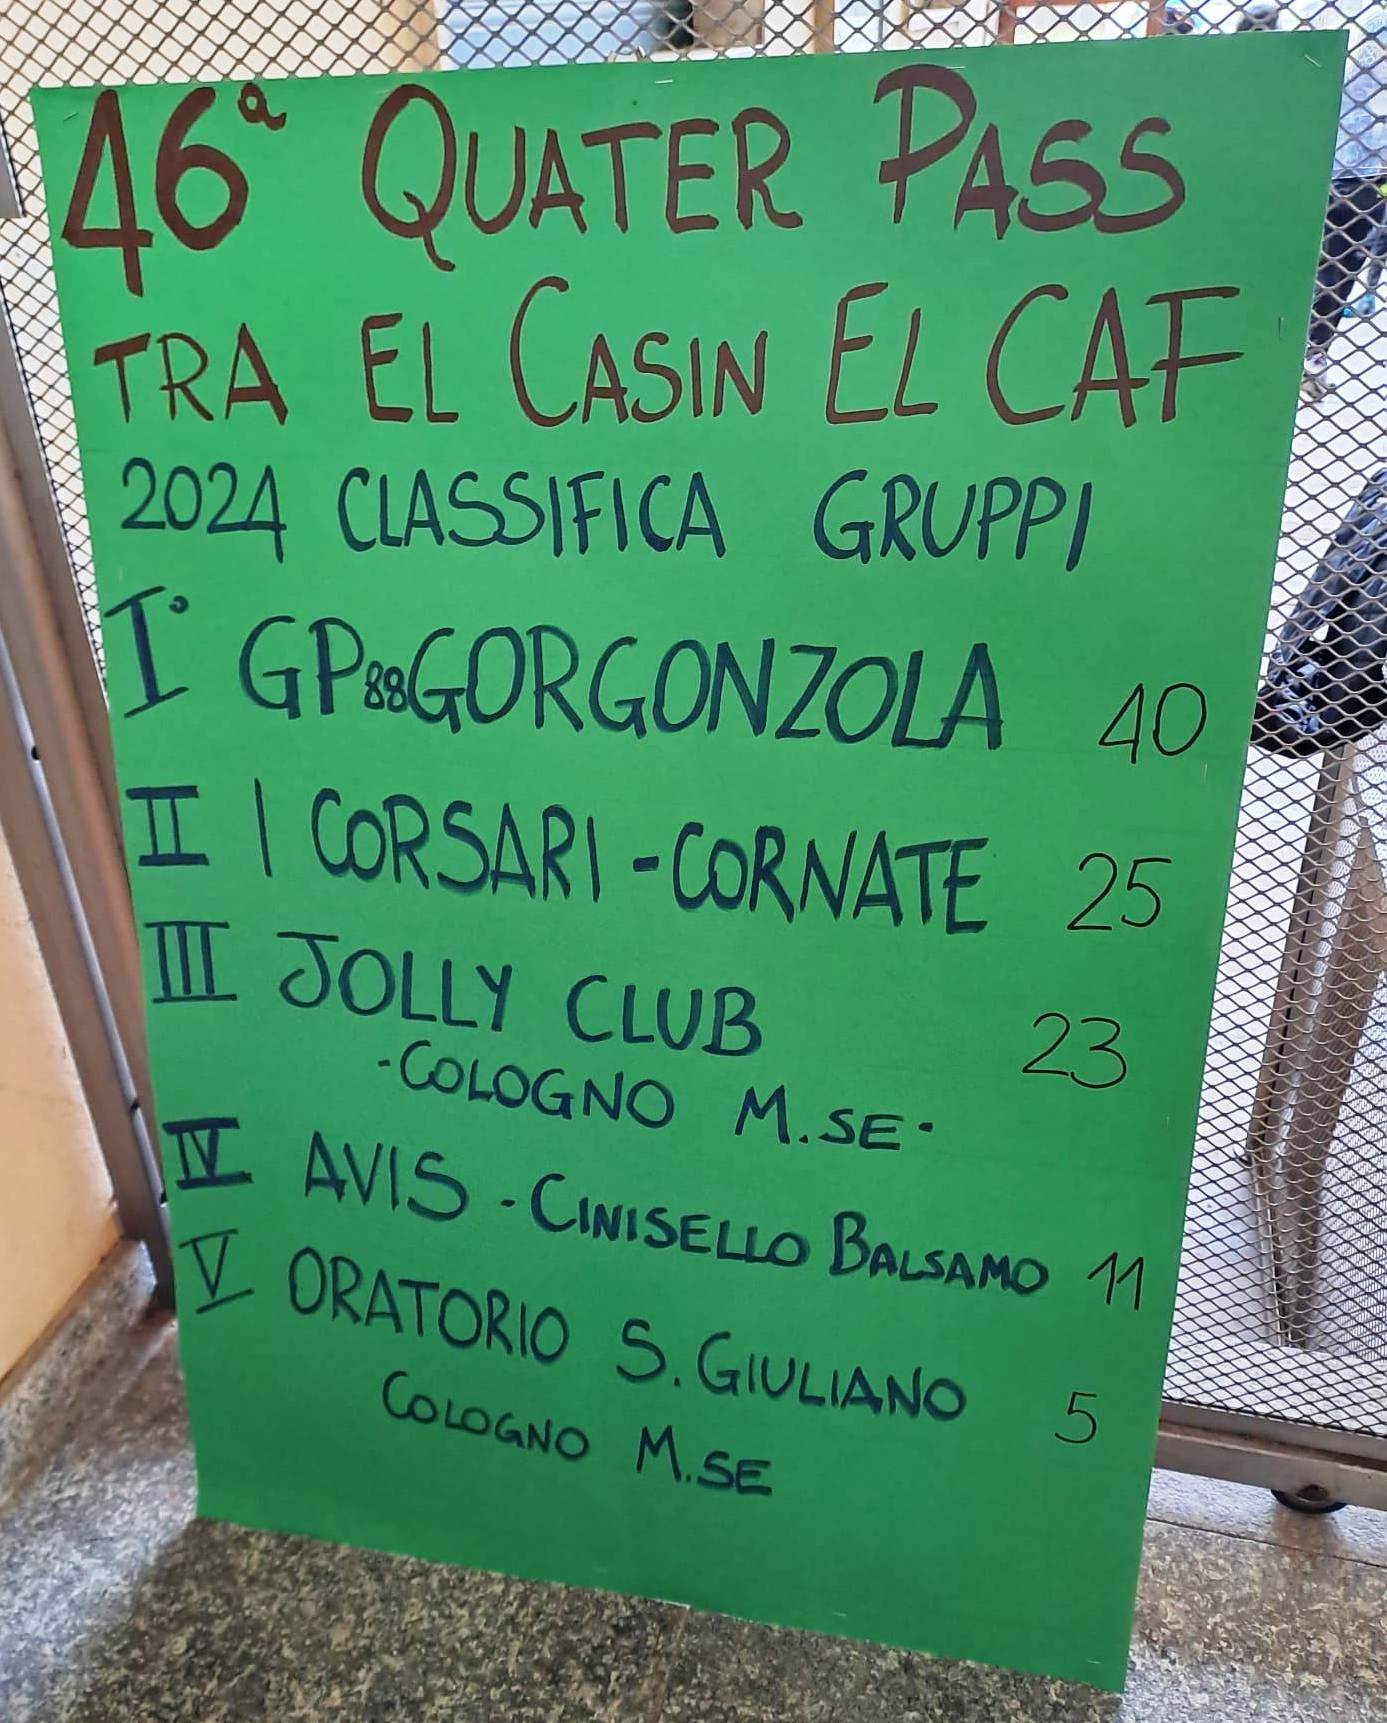 46ª QUATER PASS
TRA EL CASIN EL CAF
2024 CLASSIFICA GRUPPI
I° GP88GORGONZOLA 40
II I CORSARI - CORNATE 25
III JOLLY CLUB 23
- COLOGNO M.SE -
IV AVIS - CINISELLO BALSAMO 11
V ORATORIO S. GIULIANO 5
COLOGNO M.SE